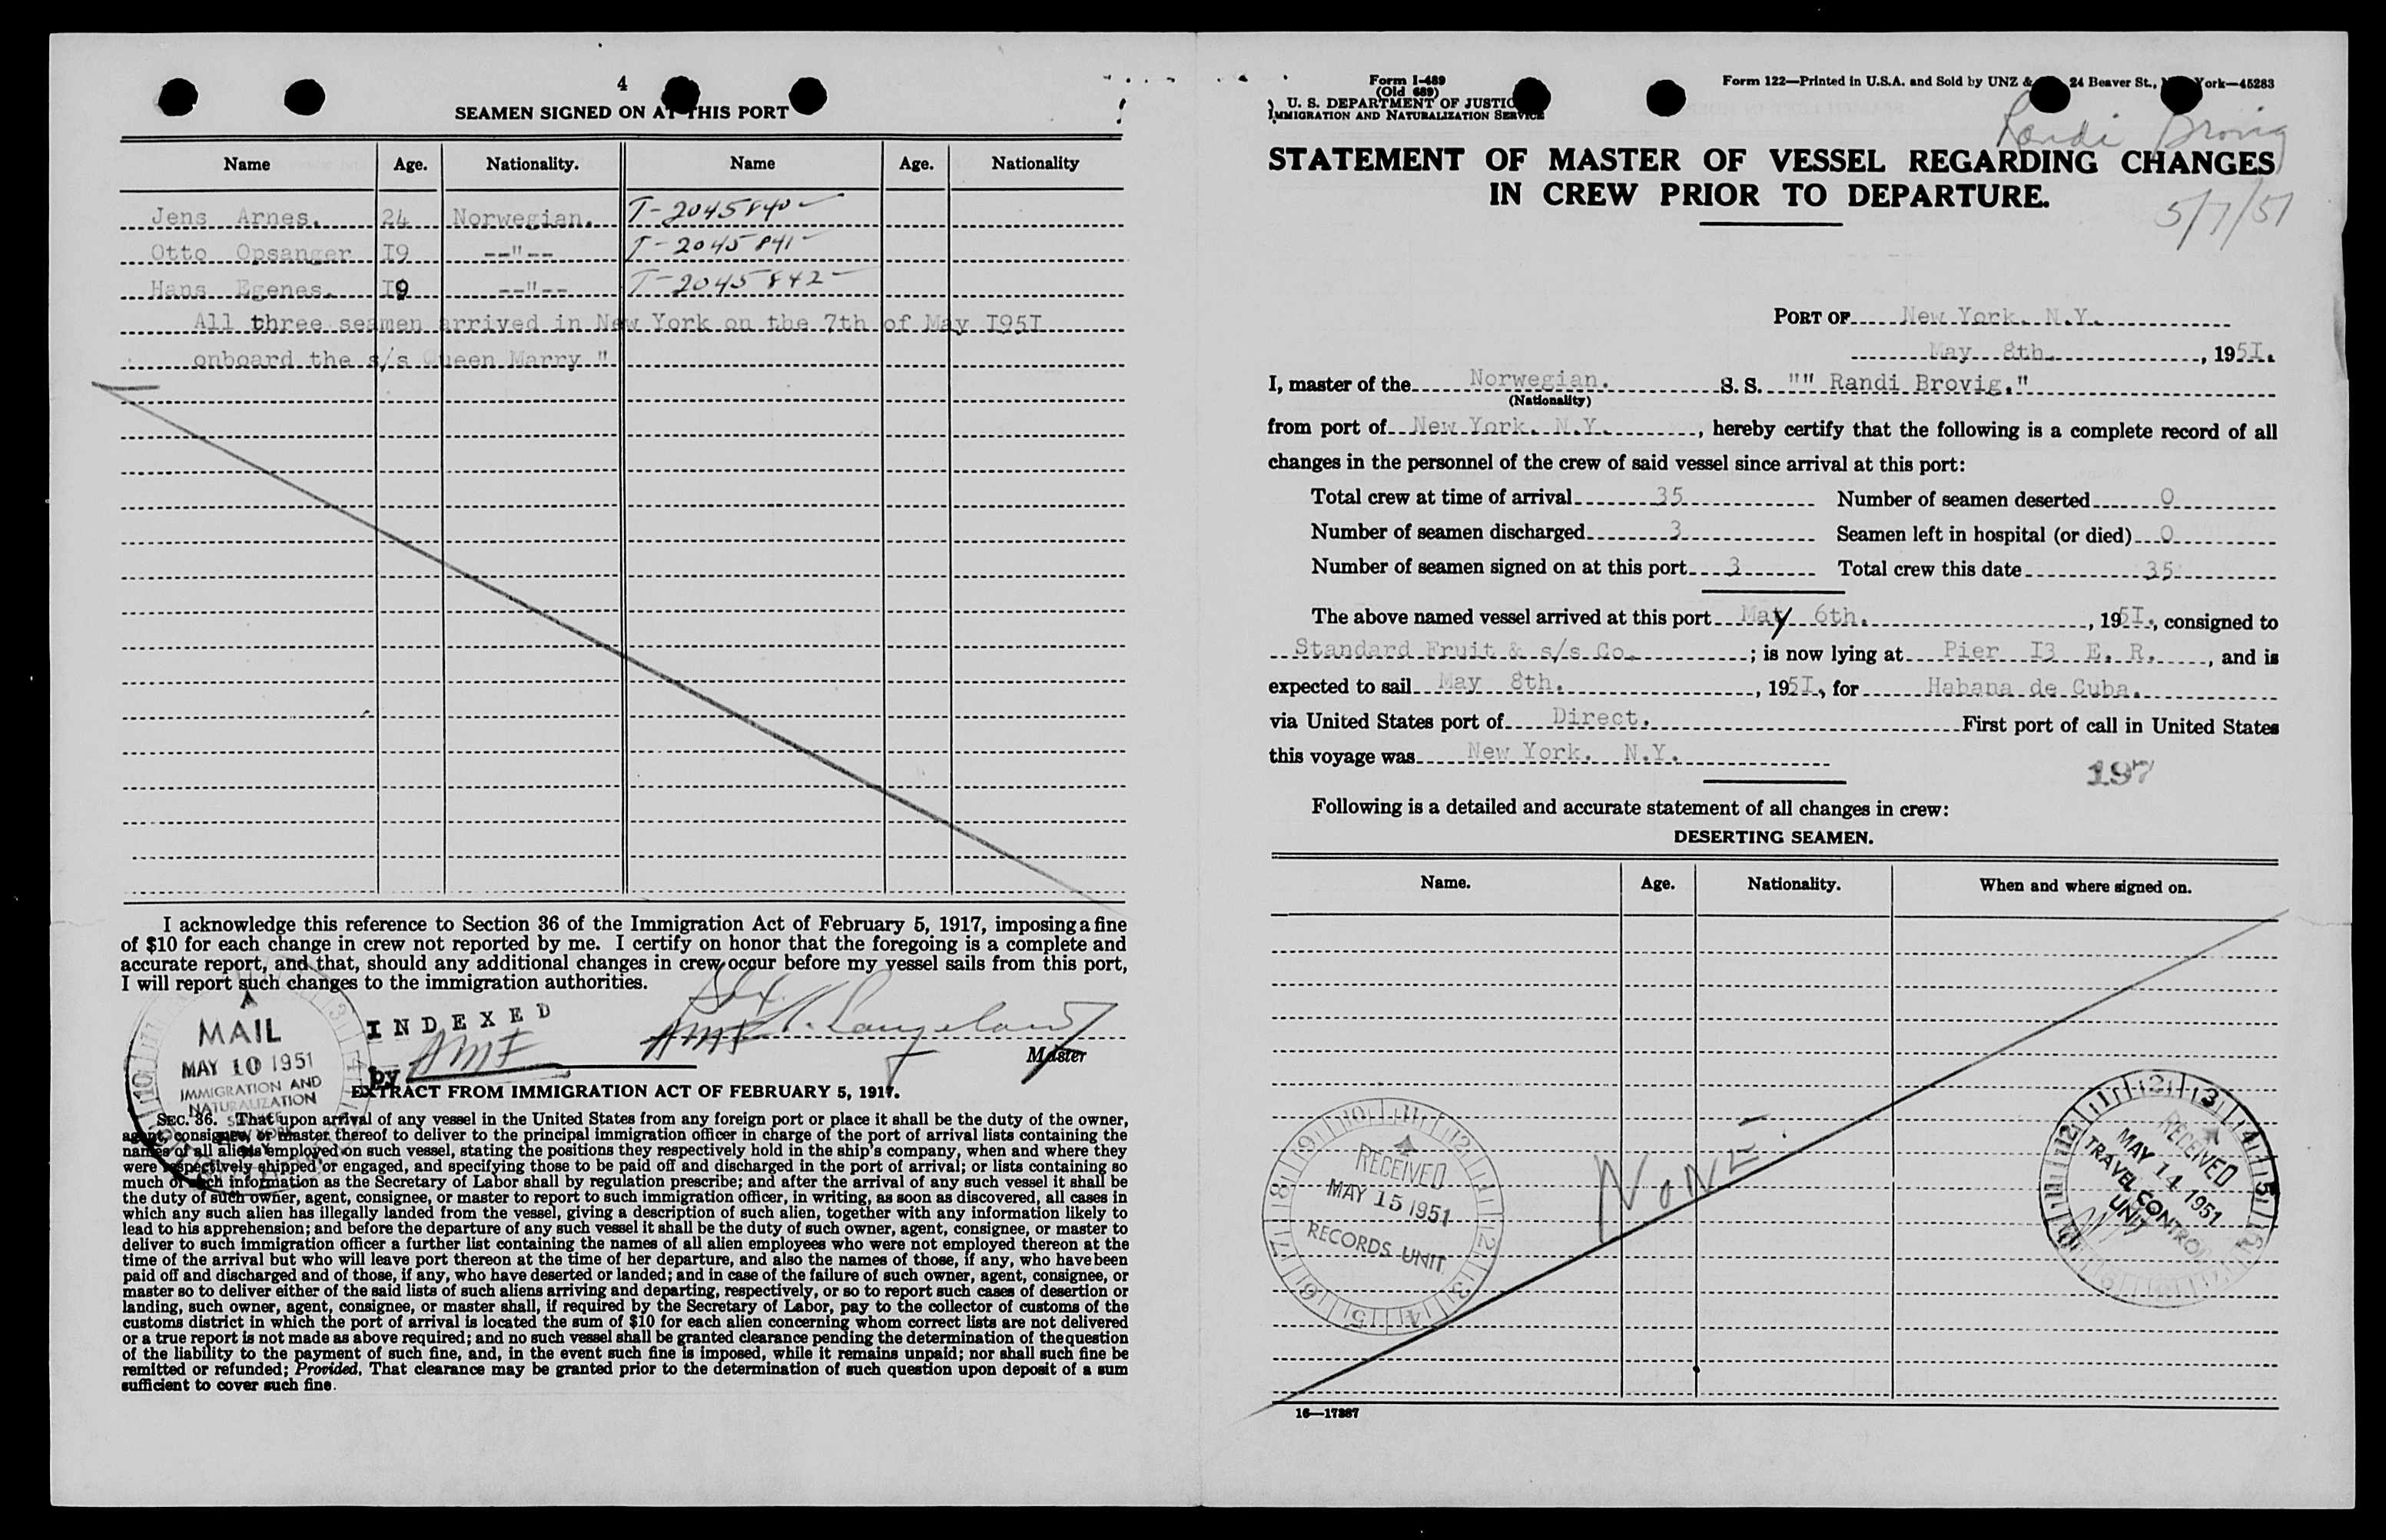 4
SEAMEN SIGNED ON AT THIS PORT
Name Age. Nationality. Name Age. Nationality
Jens Arnes. 24 Norwegian. T-2045840
Otto Opsanger I9 --"-- T-2045841
Hans Egenes. I9 --"-- T-2045842
All three seamen arrived in New York on the 7th of May I95I
onboard the s/s Queen Marry "
I acknowledge this reference to Section 36 of the Immigration Act of February 5, 1917, imposing a fine
of $10 for each change in crew not reported by me. I certify on honor that the foregoing is a complete and
accurate report, and that, should any additional changes in crew occur before my vessel sails from this port,
I will report such changes to the immigration authorities.
MAIL
MAY 10 1951
IMMIGRATION AND
NATURALIZATION
INDEXED
by AMF
Master
EXTRACT FROM IMMIGRATION ACT OF FEBRUARY 5, 1917.
SEC. 36. That upon arrival of any vessel in the United States from any foreign port or place it shall be the duty of the owner,
agent, consignee, or master thereof to deliver to the principal immigration officer in charge of the port of arrival lists containing the
names of all aliens employed on such vessel, stating the positions they respectively hold in the ship's company, when and where they
were respectively shipped or engaged, and specifying those to be paid off and discharged in the port of arrival; or lists containing so
much of such information as the Secretary of Labor shall by regulation prescribe; and after the arrival of any such vessel it shall be
the duty of such owner, agent, consignee, or master to report to such immigration officer, in writing, as soon as discovered, all cases in
which any such alien has illegally landed from the vessel, giving a description of such alien, together with any information likely to
lead to his apprehension; and before the departure of any such vessel it shall be the duty of such owner, agent, consignee, or master to
deliver to such immigration officer a further list containing the names of all alien employees who were not employed thereon at the
time of the arrival but who will leave port thereon at the time of her departure, and also the names of those, if any, who have been
paid off and discharged and of those, if any, who have deserted or landed; and in case of the failure of such owner, agent, consignee, or
master so to deliver either of the said lists of such aliens arriving and departing, respectively, or so to report such cases of desertion or
landing, such owner, agent, consignee, or master shall, if required by the Secretary of Labor, pay to the collector of customs of the
customs district in which the port of arrival is located the sum of $10 for each alien concerning whom correct lists are not delivered
or a true report is not made as above required; and no such vessel shall be granted clearance pending the determination of the question
of the liability to the payment of such fine, and, in the event such fine is imposed, while it remains unpaid; nor shall such fine be
remitted or refunded; Provided, That clearance may be granted prior to the determination of such question upon deposit of a sum
sufficient to cover such fine.
Form I-489
(Old 689)
U. S. DEPARTMENT OF JUSTICE
IMMIGRATION AND NATURALIZATION SERVICE
Form 122—Printed in U.S.A. and Sold by UNZ & 24 Beaver St., York—45283
Randi Brovig
STATEMENT OF MASTER OF VESSEL REGARDING CHANGES
IN CREW PRIOR TO DEPARTURE.
5/7/51
PORT OF New York. N.Y.
May 8th. , 195I.
I, master of the Norwegian. S. S. "" Randi Brovig."
(Nationality)
from port of New York. N.Y. , hereby certify that the following is a complete record of all
changes in the personnel of the crew of said vessel since arrival at this port:
Total crew at time of arrival 35 Number of seamen deserted 0
Number of seamen discharged 3 Seamen left in hospital (or died) 0
Number of seamen signed on at this port 3 Total crew this date 35
The above named vessel arrived at this port May 6th. , 195I., consigned to
Standard Fruit & s/s Co. ; is now lying at Pier I3 E. R. , and is
expected to sail May 8th. , 195I., for Habana de Cuba.
via United States port of Direct. First port of call in United States
this voyage was New York. N.Y.
197
Following is a detailed and accurate statement of all changes in crew:
DESERTING SEAMEN.
Name. Age. Nationality. When and where signed on.
NONE
RECEIVED
MAY 15 1951
RECORDS UNIT
RECEIVED
MAY 14 1951
TRAVEL CONTROL
UNIT
16—17387